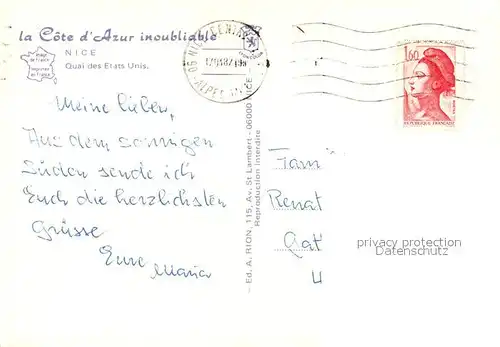 la Côte d'Azur inoubliable
NICE
Quai des Etats Unis.
Image
de France
imprimée
en France
NICE CENTRE
06
ALPES
1,60
REPUBLIQUE FRANÇAISE
Meine lieben,
Aus dem sonnigen
Süden sende ich
Euch die herzlichsten
Grüsse
Eure
Maria
Ed. A. RION, 115, Av. St Lambert - 06000 NICE
Reproduction interdite
Fam
Renat
Gat
4
privacy protection
Datenschutz